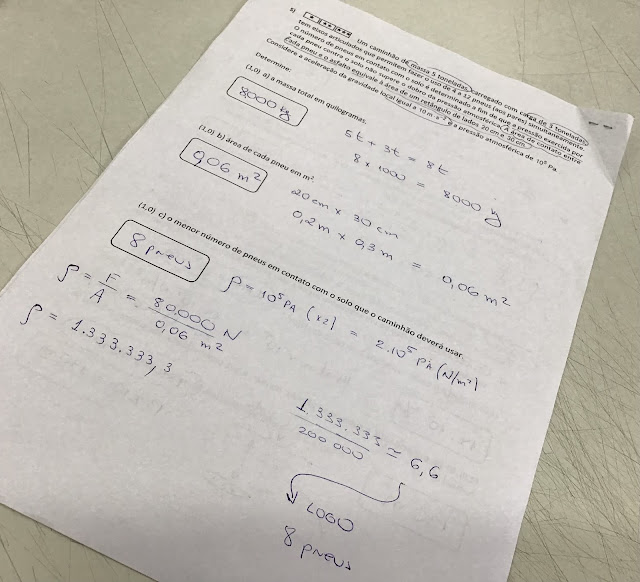 5) Um caminhão de massa 5 toneladas, carregado com carga de 3 toneladas,
tem eixos articulados que permitem fazer o uso de 4 a 12 pneus (aos pares) simultaneamente.
O número de pneus em contato com o solo é determinado a fim de que a pressão exercida por
cada pneu contra o solo não supere o dobro da pressão atmosférica. A área de contato entre
cada pneu e o asfalto equivale à área de um retângulo de lados 20 cm e 30 cm.
Considere a aceleração da gravidade local igual a 10 m.s⁻² e a pressão atmosférica de 10⁵ Pa.
Determine:
(1,0) a) a massa total em quilogramas.
8000 kg
5t + 3t = 8t
8 x 1000 = 8000 kg
(1,0) b) área de cada pneu em m².
0,06 m²
20 cm x 30 cm
0,2m x 0,3m = 0,06 m²
(1,0) c) o menor número de pneus em contato com o solo que o caminhão deverá usar.
8 pneus
P = 10⁵ PA (x2) = 2.10⁵ PA (N/m²)
P = F/A = 80.000 N / 0,06 m²
P = 1.333.333,3
1.333.333 / 200 000 ≃ 6,6
LOGO
8 pneus